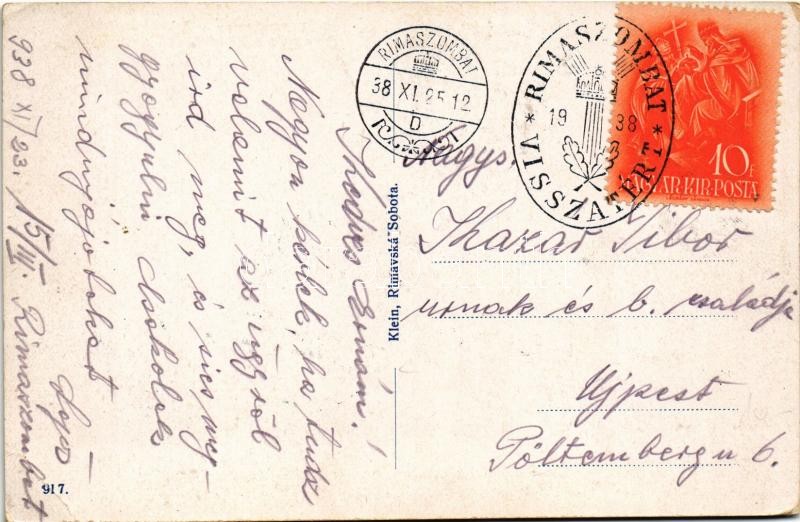 938 XI/23. 15/IV. Rimaszombat
Kedves Ernám!
Nagyon kérlek, ha tudsz
valamit az ügyről
írd meg, és siess meg-
gyógyulni Csókolok
mindnyájótokat
Lajos
Klein, Rimavská Sobota.
917.
RIMASZOMBAT
38 XI. 25 12
D
RIMASZOMBAT
19 38
* VISSZATÉRT *
10 f
MAGYAR·KIR·POSTA
Nagys.
Kazár Tibor
urnak és b. családja
Ujpest
Pöltemberg u 6.